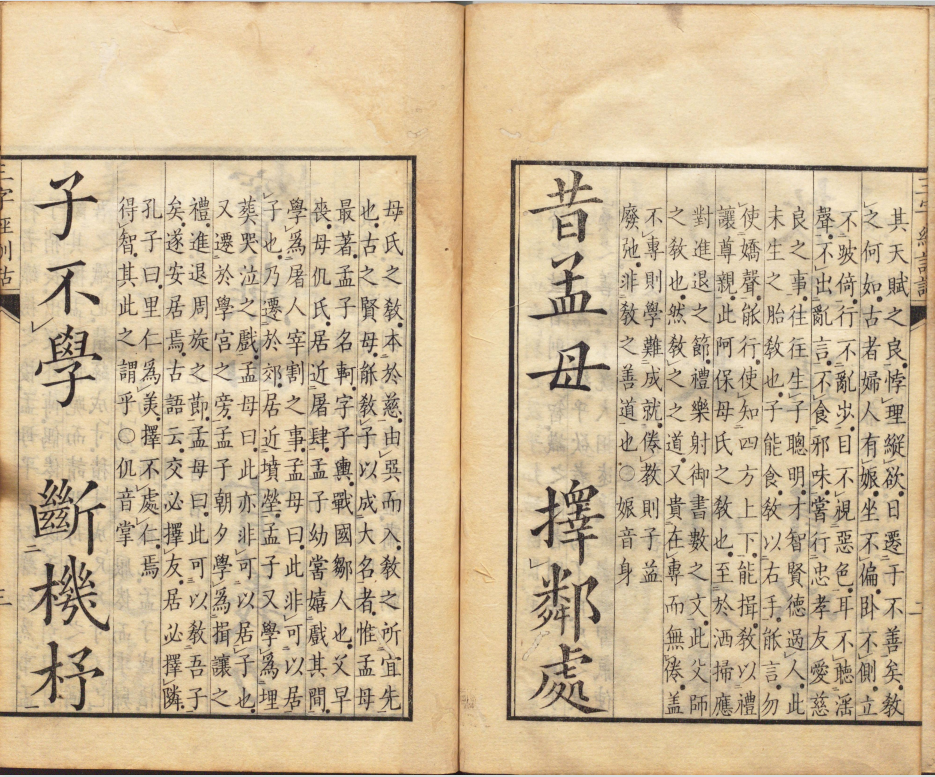 三字經訓詁
二
其天賦之良。悖理縱欲。日遷于不善矣。教
之何如。古者婦人有娠。坐不偏。卧不側。立
不跛倚。行不亂步。目不視惡色。耳不聽淫
聲。不出亂言。不食邪味。嘗行忠孝友愛慈
良之事。往往生子聰明。才智賢德過人。此
未生之胎教也。子能食。教以右手。能言。勿
使嬌聲。能行。使知四方上下。能揖。教以禮
讓尊親。此阿保母氏之教也。至於洒掃應
對進退之節。禮樂射御書數之文。此父師
之教也。然教之之道。又貴在專而無倦。蓋
不專則學難成就。倦教則子益
廢弛。非教之善道也〇娠音身
昔孟母 擇鄰處
母氏之教。本於慈。由㢲而入。教之所宜先
也。古之賢母。能教子以成大名者。惟孟母
最著。孟子名軻。字子輿。戰國鄒人也。父早
喪。母仉氏。居近屠肆。孟子幼嘗嬉戲其間。
學爲屠人宰割之事。孟母曰。此非可以居
子也。乃遷於郊。居近墳塋。孟子又學爲埋
葬哭泣之戲。孟母曰。此亦非可以居子也。
又遷於學宮之旁。孟子朝夕學爲揖讓之
禮。進退周旋之節。孟母曰。此可以教吾子
矣。遂安居焉。古語云。交必擇友。居必擇隣。
孔子曰。里仁爲美。擇不處仁。焉
得智。其此之謂乎〇仉音掌
子不學 斷機杼
三字經訓詁
三